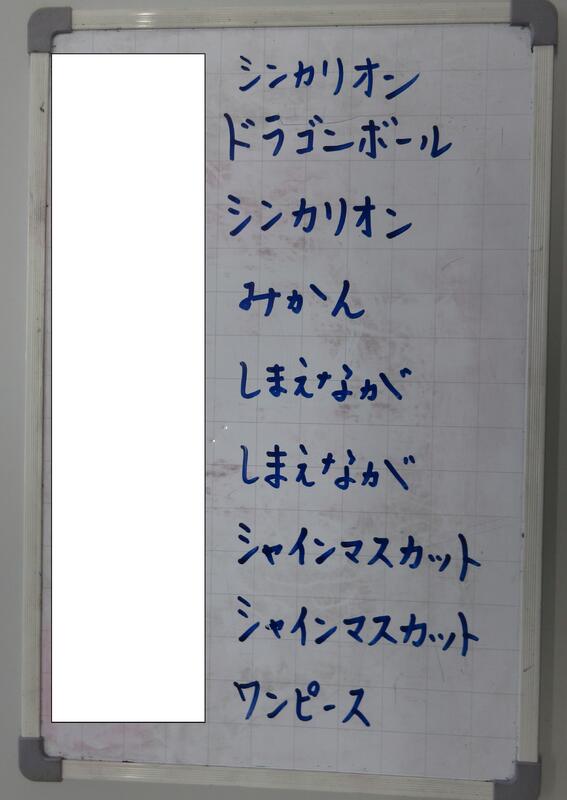 シンカリオン
ドラゴンボール
シンカリオン
みかん
しまえなが
しまえなが
シャインマスカット
シャインマスカット
ワンピース